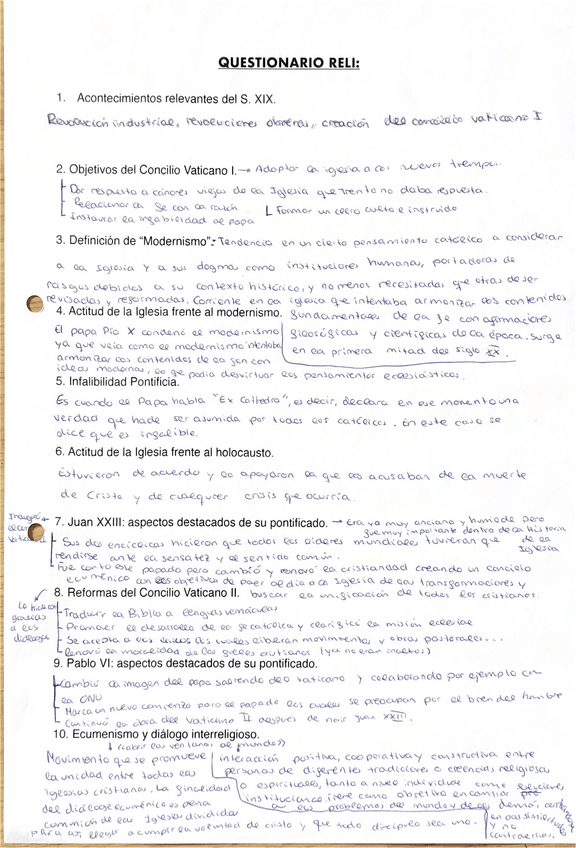 QUESTIONARIO RELI:
1. Acontecimientos relevantes del S. XIX.
Revolución industrial, revoluciones obreras, creación del concilio vaticano I
2. Objetivos del Concilio Vaticano I. → Adoptar la iglesia a los nuevos tiempos.
Dar respuesta a cánones viejos de la Iglesia que Trento no daba respuesta.
Relacionar la fe con la razón
Formar un clero culto e instruido
Instaurar la infabilidad de papa
3. Definición de "Modernismo": Tendencia en un cierto pensamiento católico a considerar
a la Iglesia y a sus dogma, como instituciones humana, portadoras de
rasgos debidos a su contexto histórico, y no menos necesitadas que otras de ser
revisadas y reformadas. Corriente en la iglesia que intentaba armonizar los contenidos
4. Actitud de la Iglesia frente al modernismo.
fundamentales de la fe con afirmaciones
filosóficas y científicas de la época. Surge
en la primera mitad del siglo XX.
El papa Pío X condenó el modernismo
ya que veía como el modernismo intentaba
armonizar los contenidos de la fe con
ideas modernas, lo que podía desvirtuar los pensamientos eclesiásticos.
5. Infalibilidad Pontificia.
Es cuando el Papa habla "Ex Cathedra", es decir, declara en ese momento una
verdad que hade ser asumida por todos los católicos. En este caso se
dice que es infalible.
6. Actitud de la Iglesia frente al holocausto.
Estuvieron de acuerdo y lo apoyaron ya que los acusaban de la muerte
de Cristo y de cualquier crisis que ocurría.
7. Juan XXIII: aspectos destacados de su pontificado. → Era ya muy anciano y humilde pero
fue muy importante dentro de la historia
de la Iglesia
Inauguró el con. Vatic. II
Sus dos encíclicas hicieron que todos los líderes mundiales tuvieran que
rendirse ante la sensatez y el sentido común.
Fue corto este papado pero cambió y renovó la cristiandad creando un concilio
ecuménico con los objetivos de poner al día a la Iglesia de las transformaciones y
8. Reformas del Concilio Vaticano II.
buscar la unificación de todos los cristianos.
Lo hicieron gracias a los diálogos
Traducir la Biblia a lenguas vernáculas
Promover el desarrollo de la fe católica y clarificó la misión eclesial
Se acepta a los laicos los cuales liberan movimientos y obras pastorales...
Renovó la moralidad de los fieles cristianos (ya no eran incultos)
9. Pablo VI: aspectos destacados de su pontificado.
Cambió la imagen del papa saliendo del vaticano y colaborando por ejemplo con
la ONU
Marca un nuevo comienzo para el papado los cuales se preocupan por el bien del hombre
Continuó la obra del Vaticano II después de morir Juan XXIII.
10. Ecumenismo y diálogo interreligioso.
↓ (abrir las ventanas al mundo)
Movimiento que se promueve
la unidad entre todas las
iglesias cristianas. La finalidad
del diálogo ecuménico es plena
comunión de las Iglesias divididas
para así, llegar a cumplir la voluntad de cristo y que todo discípulo sea uno.
interacción positiva, cooperativa y constructiva entre
personas de diferentes tradiciones o creencias religiosas
o espirituales, tanto a nivel individual como
institucional, tiene como objetivo encontrar
a los problemas del mundo y de los demás,
y no